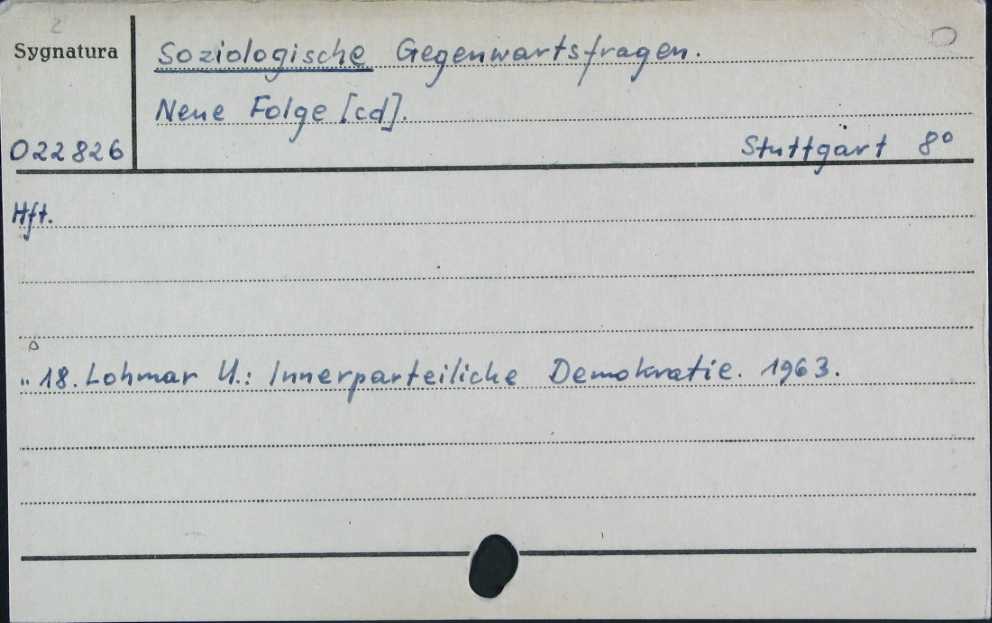 2
Sygnatura
Soziologische Gegenwartsfragen.
Neue Folge [cd].
022826
Stuttgart 8°
Hft.
„ 18. Lohmar U.: Innerparteiliche Demokratie. 1963.